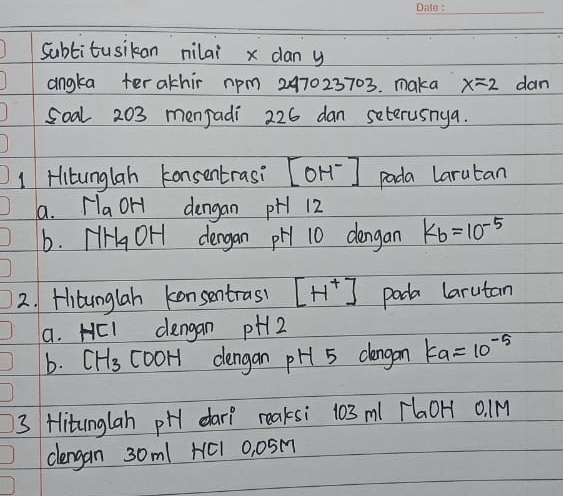 Date :
Subtitusikan nilai x dan y
angka terakhir npm 247023703. maka x=2 dan
soal 203 menjadi 226 dan seterusnya.
1 Hitunglah konsentrasi [OH⁻] pada larutan
a. NaOH dengan pH 12
b. NH4OH dengan pH 10 dengan Kb=10⁻⁵
2. Hitunglah konsentrasi [H⁺] pada larutan
a. HCl dengan pH 2
b. CH3COOH dengan pH 5 dengan ka=10⁻⁵
3 Hitunglah pH dari reaksi 103 ml NaOH 0,1M
dengan 30ml HCl 0,05M